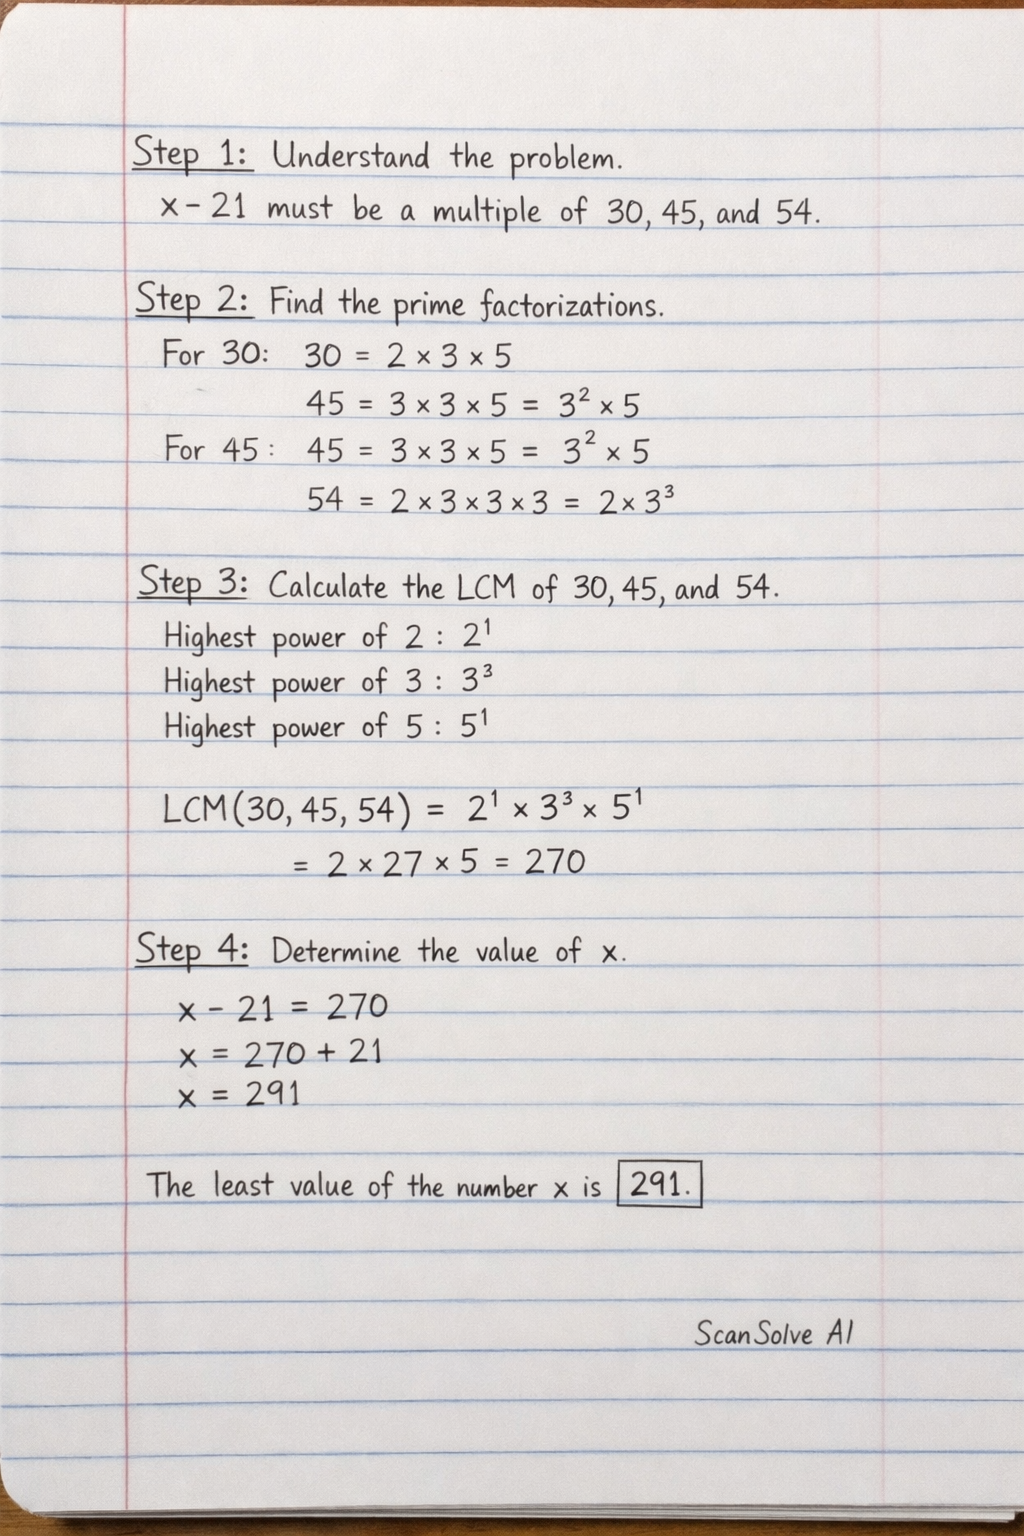 Step 1: Understand the problem.
x - 21 must be a multiple of 30, 45, and 54.
Step 2: Find the prime factorizations.
For 30: 30 = 2 × 3 × 5
45 = 3 × 3 × 5 = 3² × 5
For 45: 45 = 3 × 3 × 5 = 3² × 5
54 = 2 × 3 × 3 × 3 = 2 × 3³
Step 3: Calculate the LCM of 30, 45, and 54.
Highest power of 2 : 2¹
Highest power of 3 : 3³
Highest power of 5 : 5¹
LCM(30, 45, 54) = 2¹ × 3³ × 5¹
= 2 × 27 × 5 = 270
Step 4: Determine the value of x.
x - 21 = 270
x = 270 + 21
x = 291
The least value of the number x is 291.
ScanSolve AI